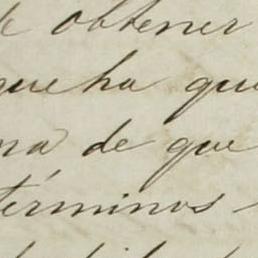 de obtener
que ha que
ma de que
términos